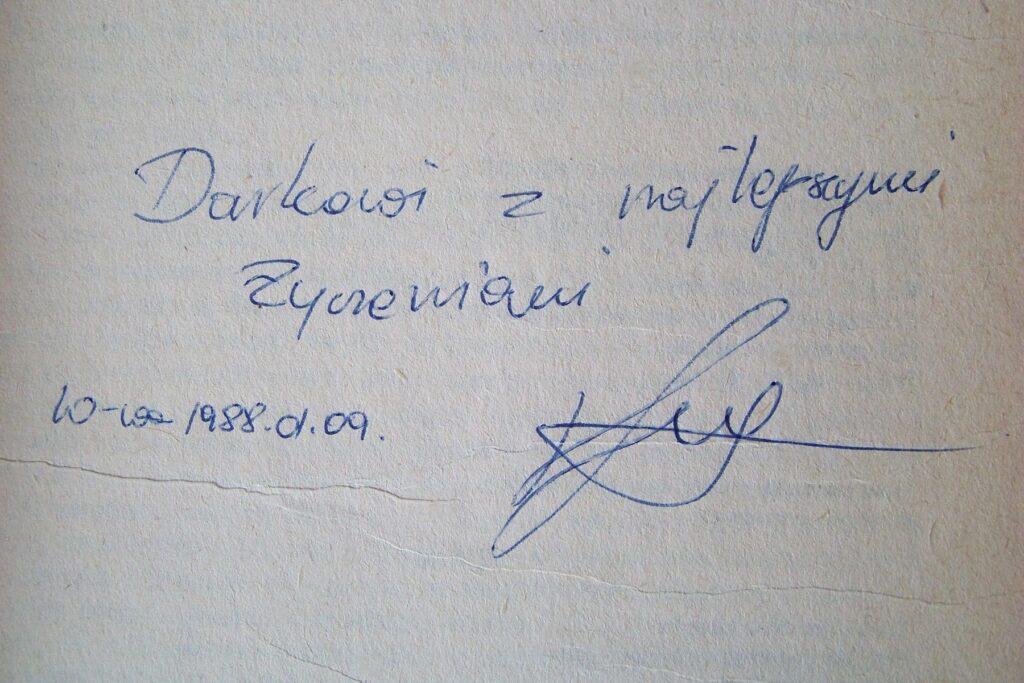 Darkowi z najlepszymi
życzeniami
W-wa 1988.01.09.